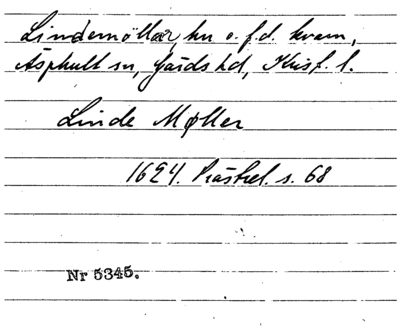 Lindemöllan, hn o. f.d. kvarn,
Äsphult sn, Gärds hd, Krist. l.
Linde Møller
1624. Prästrel. s. 68
Nr 5345.